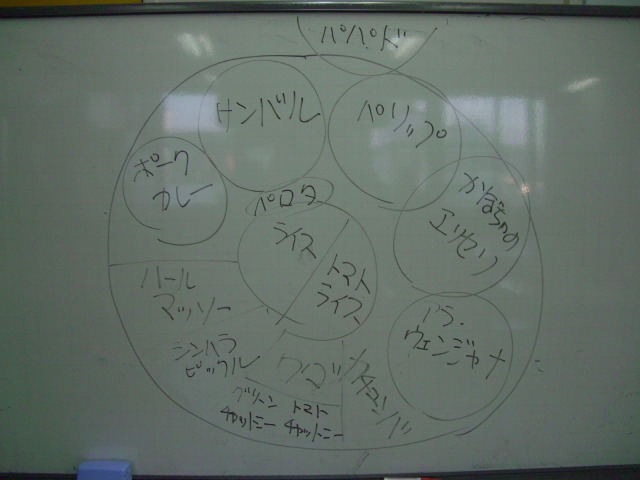 パパド
サンバル
パリップ
ポーク
カレー
パロタ
かぼちゃの
エリセリ
ライス
トマト
ライス
パール
マッソー
ウェンジャナ
シンハラ
ピックル
グリーン
チャットニー
トマト
チャットニー